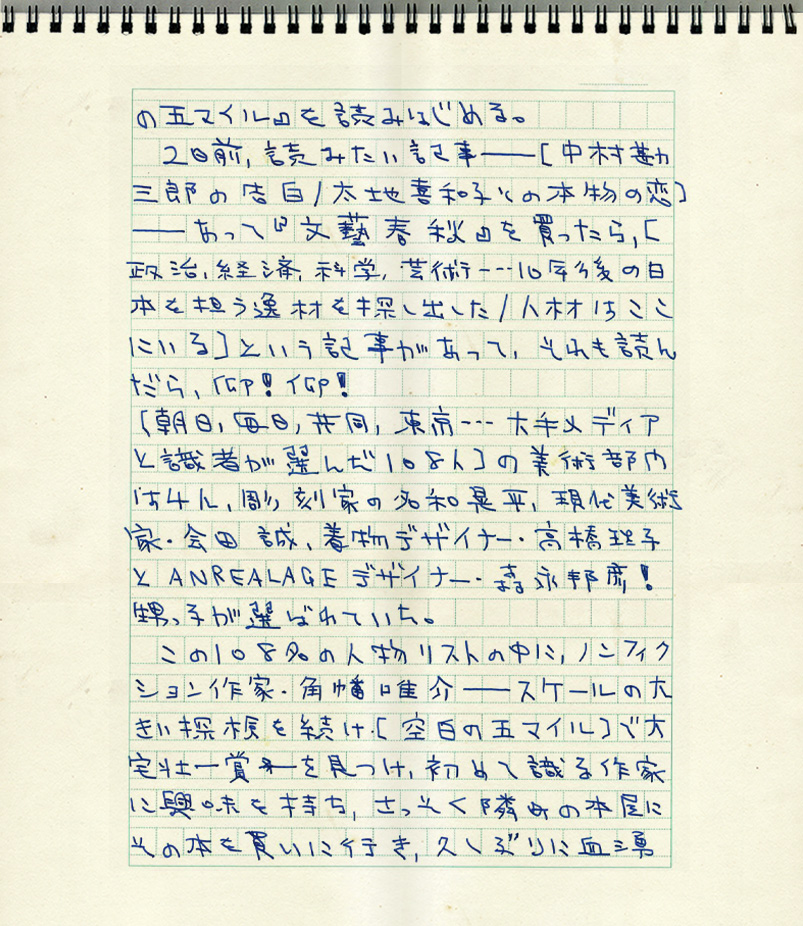 の五マイル』を読みはじめる。
2日前、読みたい記事――[中村勘
三郎の告白/太地喜和子との本物の恋]
――あって『文藝春秋』を買ったら、[
政治、経済、科学、芸術……10年後の日
本を担う逸材を探し出した/人材はここ
にいる]という記事があって、それも読ん
だら、
[朝日、毎日、共同、東京…大手メディア
と識者が選んだ108人]の美術部門
は4人、彫刻家の名和晃平、現代美術
家・会田誠、着物デザイナー・高橋理子
とANREALAGEデザイナー・森永邦彦!
甥っ子が選ばれていた。
この108名の人物リストの中に、ノンフィク
ション作家・角幡唯介――スケールの大
きい探検を続け、[空白の五マイル]で大
宅壮一賞――を見つけ、初めて識る作家
に興味を持ち、さっそく隣町の本屋に
その本を買いに行き、久しぶりに血湧